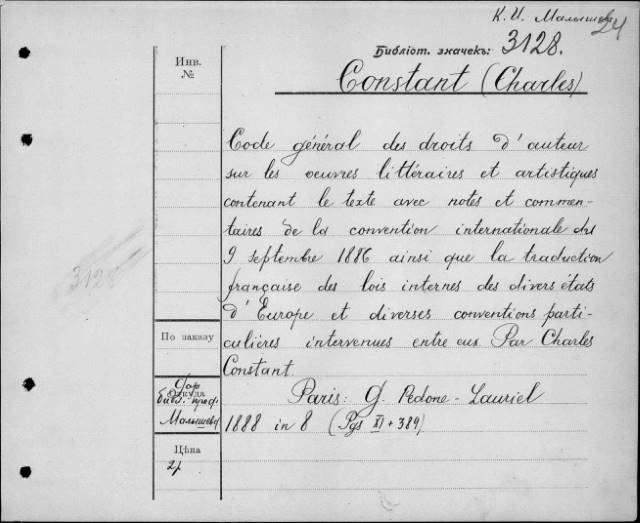 К. И. Малышева 24
Библіот. значекъ: 3128.
Инв.
№
Constant (Charles)
Code général des droits d'auteur
sur les oeuvres littéraires et artistiques
contenant le texte avec notes et commen-
taires de la convention internationale du
9 septembre 1886 ainsi que la traduction
3128
française des lois internes des divers états
d'Europe et diverses conventions parti-
По заказу
culières intervenues entre eux Par Charles
Constant.
Дар
Откуда
библ. проф.
Малышева
Paris: G. Pedone-Lauriel
1888 in 8 (Pgs XI + 389)
Цѣна
2р